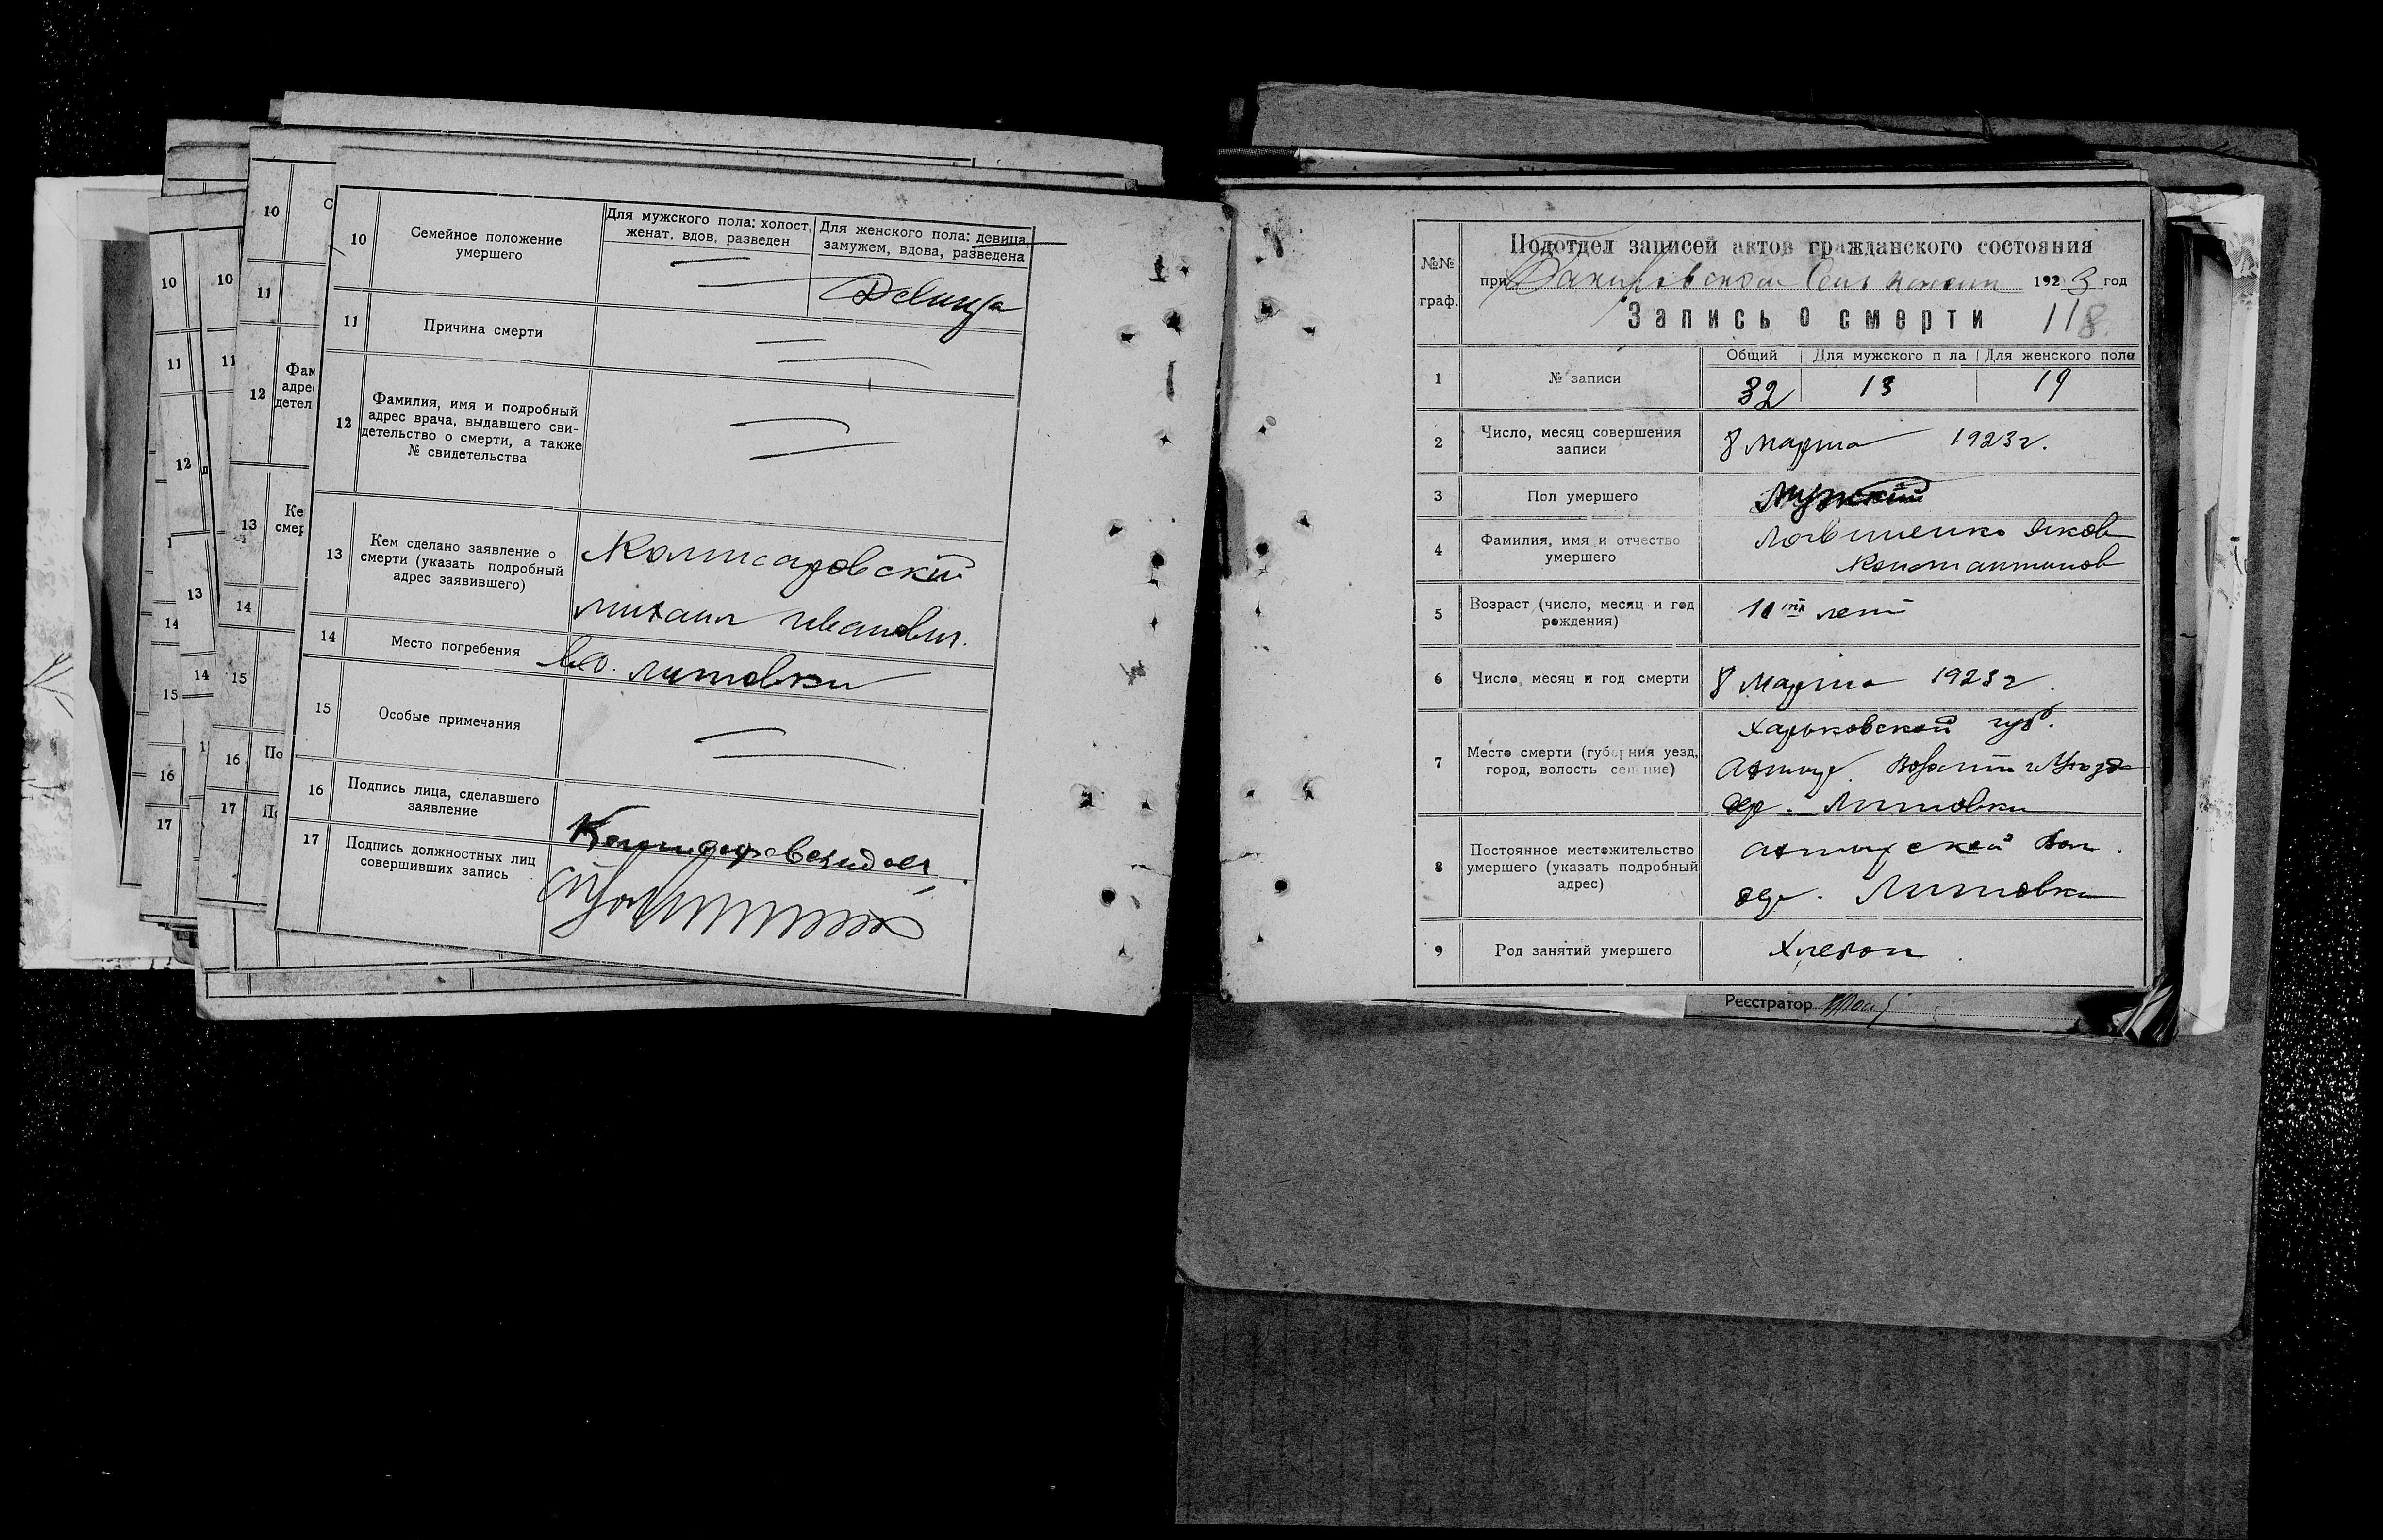 10
Семейное положение
умершего
Для мужского пола: холост,
женат. вдов, разведен
Для женского пола: девица,
замужем, вдова, разведена
Девица
11
Причина смерти
12
Фамилия, имя и подробный
адрес врача, выдавшего сви-
детельство о смерти, а также
№ свидетельства
13
Кем сделано заявление о
смерти (указать подробный
адрес заявившего)
Михаил Иванович.
14
Место погребения
Литовки
15
Особые примечания
16
Подпись лица, сделавшего
заявление
17
Подпись должностных лиц
совершивших запись
10
11
12
13
14
15
16
17
10
11
12
13
14
15
16
17
10
С
11
12
Фам
адрес
детел
13
Ке
смер
14
15
16
По
17
№№
граф.
Подотдел записей актов гражданского состояния
при 1923 год
Запись о смерти 118
1
№ записи
Общий Для мужского п ла Для женского пола
32 13 19
2
Число, месяц совершения
записи
8 Марта 1923 г.
3
Пол умершего
Мужский
4
Фамилия, имя и отчество
умершего
Логвиненко Яков
Константинов
5
Возраст (число, месяц и год
рождения)
лет
6
Число, месяц и год смерти
8 Марта 1923 г.
7
Место смерти (губерния уезд,
город, волость селение)
Харьковской губ.
дер. Литовки
8
Постоянное местожительство
умершего (указать подробный
адрес)
Вол.
дер. Литовки
9
Род занятий умершего
Хлебоп
Реєстратор